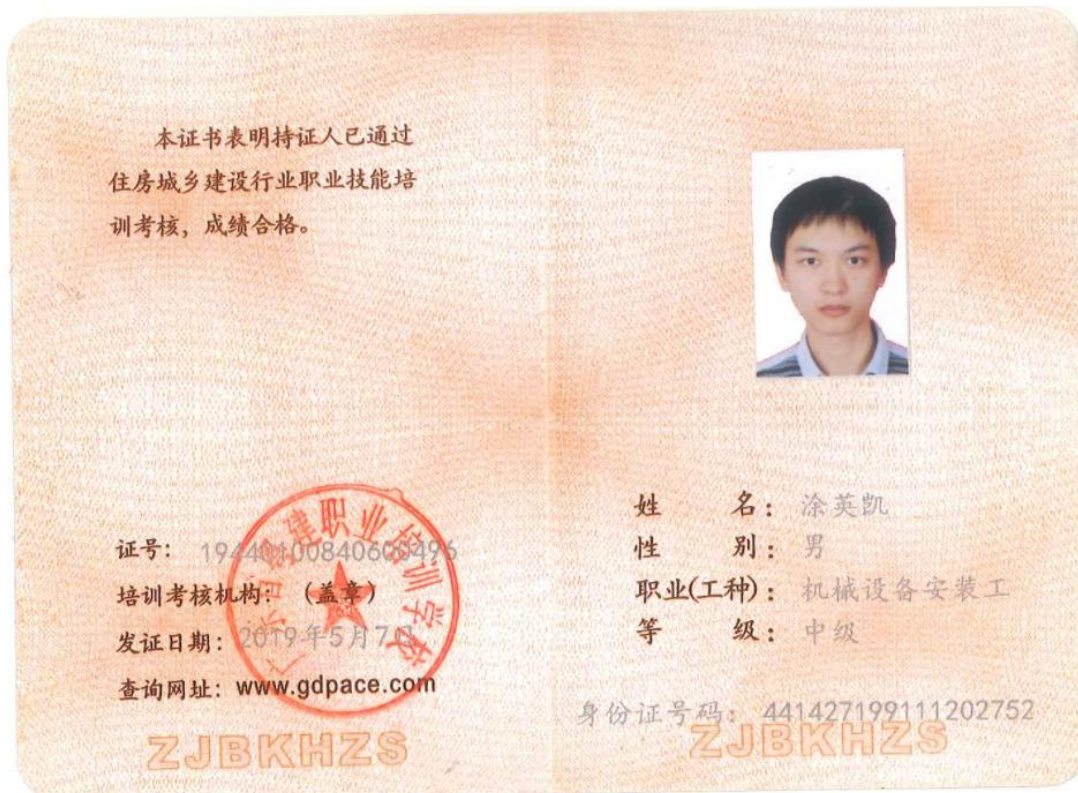 本证书表明持证人已通过
住房城乡建设行业职业技能培
训考核，成绩合格。
证号：19440100840600496
培训考核机构：（盖章）
发证日期：2019年5月7日
查询网址：www.gdpace.com
ZJBKHZS
姓 名：涂英凯
性 别：男
职业(工种)：机械设备安装工
等 级：中级
身份证号码：441427199111202752
ZJBKHZS
建职业培训学校